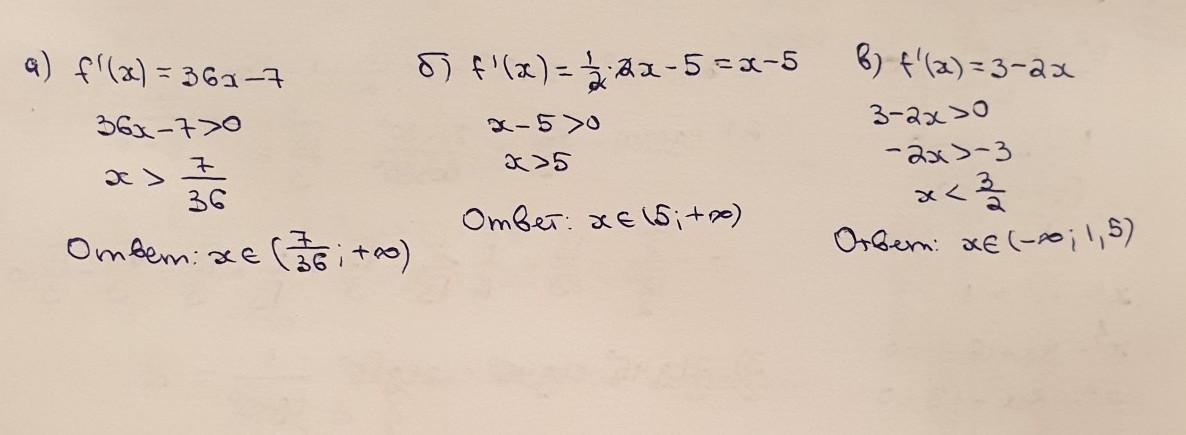 а) f'(x) = 36x - 7
36x - 7 > 0
x > 7/36
Ответ: x ∈ (7/36; +∞)
б) f'(x) = 1/2 · 2x - 5 = x - 5
x - 5 > 0
x > 5
Ответ: x ∈ (5; +∞)
в) f'(x) = 3 - 2x
3 - 2x > 0
-2x > -3
x < 3/2
Ответ: x ∈ (-∞; 1,5)